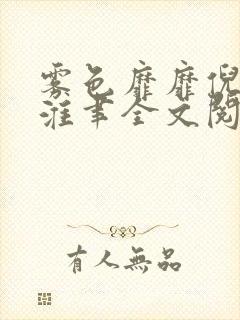 雾色靡靡倪
淮聿全文阅
有人無品